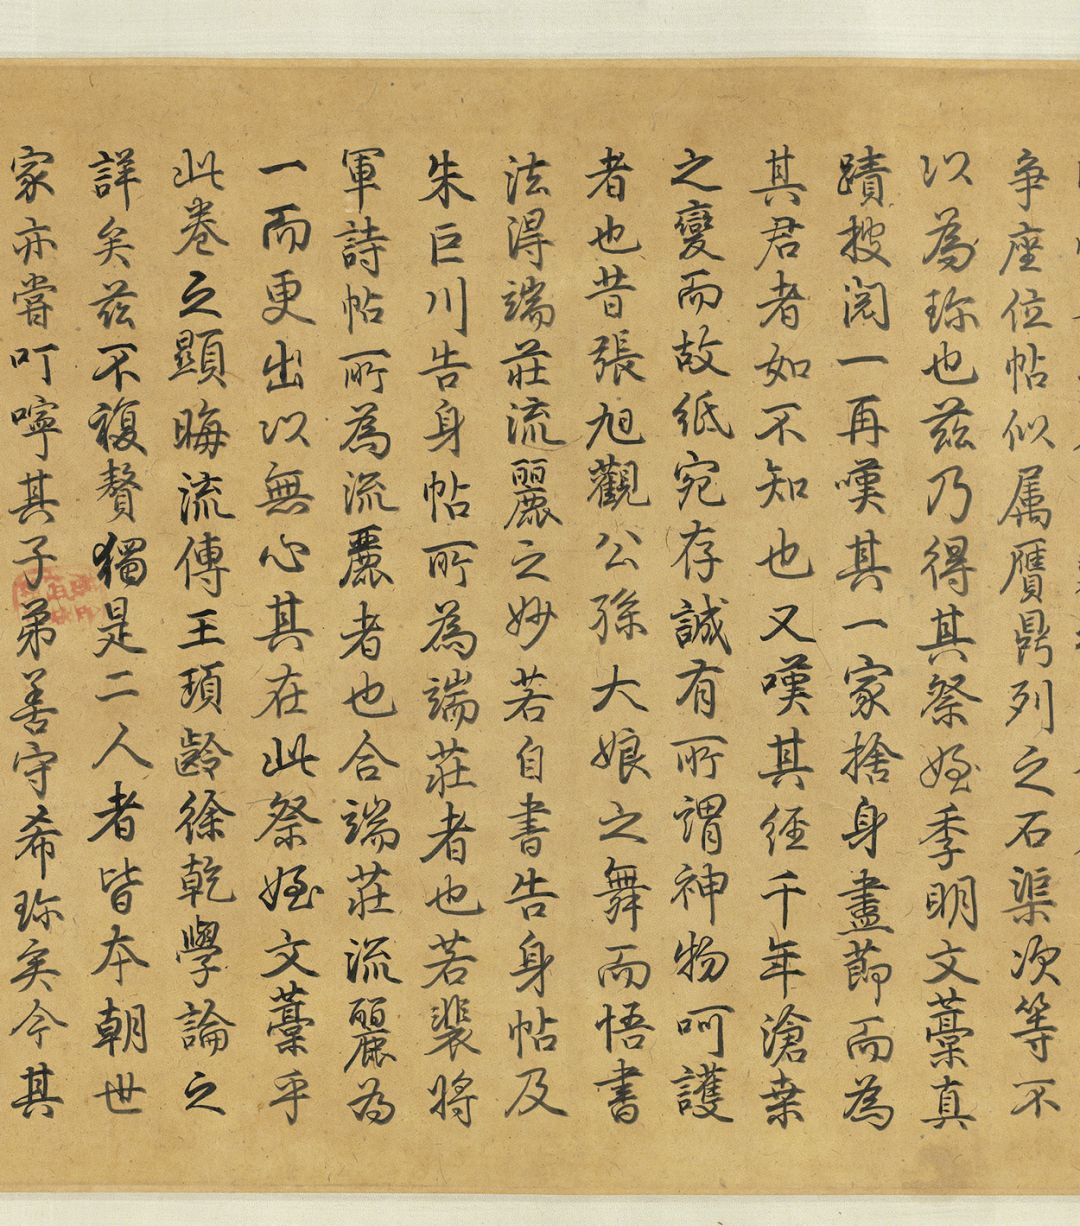 争座位帖似属贋鼎列之石渠次等不
以為珎也茲乃得其祭姪季明文藁真
蹟披閱一再嘆其一家捨身盡節而為
其君者如不知也又嘆其経千年滄桒
之變而故紙宛存誠有所謂神物呵護
者也昔張旭觀公孫大娘之舞而悟書
法得端莊流麗之妙若自書告身帖及
朱巨川告身帖所為端莊者也若裴將
軍詩帖所為流麗者也合端莊流麗為
一而更出以無心其在此祭姪文藁乎
此卷之顯晦流傳王頊齡徐乾學論之
詳矣茲不複贅獨是二人者皆本朝世
家亦嘗叮嚀其子弟善守希珎矣今其